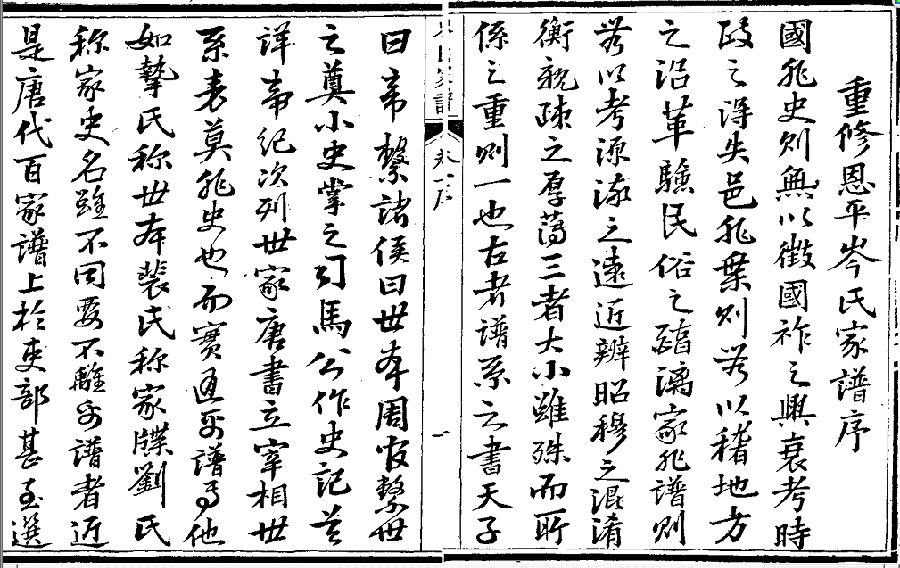 重修恩平岑氏家譜序
國非史則無以徵國祚之興衰考時
政之得失邑非乘則無以稽地方
之沿革驗民俗之醇漓家非譜則
無以考源流之遠近辨昭穆之混淆
衡親疎之厚薄三者大小雖殊而所
係之重則一也古者譜系之書天子
卷一序
一
曰帝繫諸侯曰世本周官繫世
之奠小史掌之司馬公作史記首
詳帝紀次列世家唐書立宰相世
系表莫非史也而實通乎譜焉他
如摯氏称世本裴氏称家牒劉氏
称家史名雖不同要不離乎譜者近
是唐代百家譜上於吏部甚至選